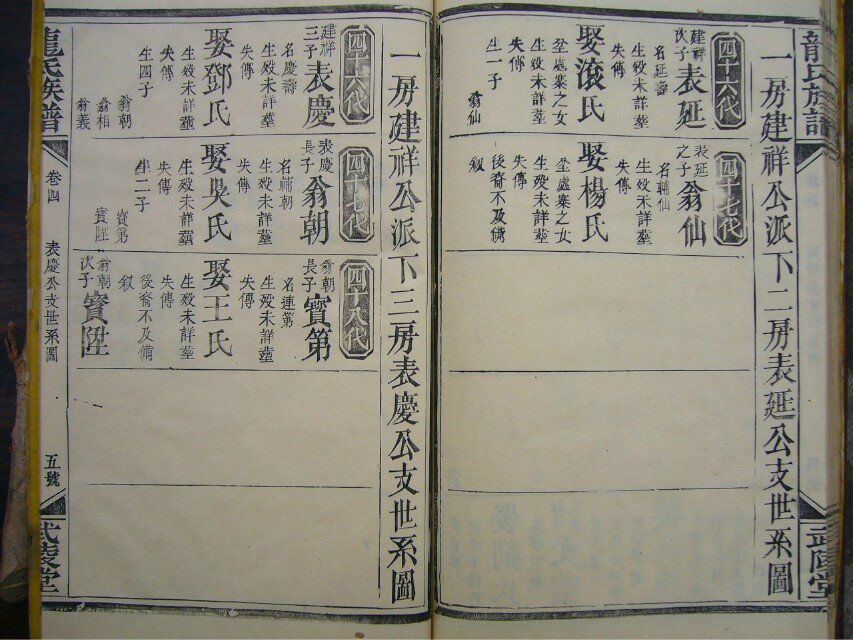 龍氏族譜
武陵堂
一房建祥公派下二房表延公支世系圖
四十六代
建祥次子
表延
名延壽
生殁未詳塟
失傳
娶滾氏
坌處寨之女
生殁未詳塟
失傳
生一子
翁仙
四十七代
表延之子
翁仙
名輔仙
生殁未詳塟
失傳
娶楊氏
坌處寨之女
生殁未詳塟
失傳
後裔不及備
叙
一房建祥公派下三房表慶公支世系圖
四十六代
建祥三子
表慶
名慶壽
生殁未詳塟
失傳
娶鄧氏
生殁未詳塟
失傳
生四子
翁朝
翁相
翁義
四十七代
表慶長子
翁朝
名輔朝
生殁未詳塟
失傳
娶吳氏
生殁未詳塟
失傳
生二子
寳第
寳陞
四十八代
翁朝長子
寳第
名連第
生殁未詳塟
失傳
娶王氏
生殁未詳塟
失傳
後裔不及備
叙
翁朝次子
寳陞
龍氏族譜
卷四
表慶公支世系圖
五號
武陵堂